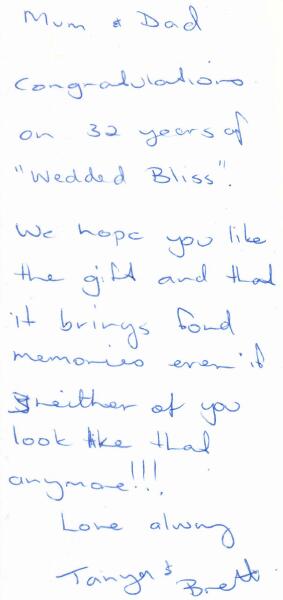 Mum & Dad
Congratulations
on 32 years of
"Wedded Bliss".
We hope you like
the gift and that
it brings fond
memories even if
neither of you
look like that
anymore!!!.
Love alway
Tanya & Brett